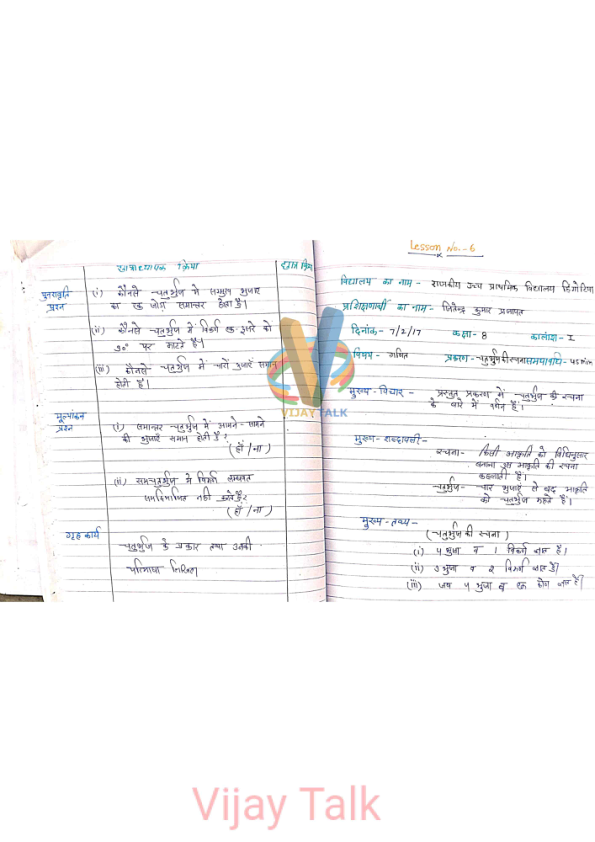 छात्राध्यापक क्रिया
पुनरावृति प्रश्न
(i) कौनसे चतुर्भुज में सम्मुख भुजाओं
का एक जोड़ा समान्तर होता है।
(ii) कौनसे चतुर्भुज में विकर्ण एक दूसरे को
90° पर काटते है।
(iii) कौनसे चतुर्भुज में चारों भुजाएँ समान
होती है।
मूल्यांकन प्रश्न
(i) समान्तर चतुर्भुज में आमने-सामने
की भुजाएँ समान होती है?
(हाँ / ना)
(ii) समचतुर्भुज में विकर्ण लम्बवत
समद्विभाजित नहीं करते है?
(हाँ / ना)
गृह कार्य
चतुर्भुज के प्रकार तथा उनकी
परिभाषा लिखिए
Lesson No.-6
विद्यालय का नाम - राजकीय उच्च प्राथमिक विद्यालय
प्रशिक्षणार्थी का नाम - जितेन्द्र कुमार प्रजापत
दिनांक- 7/2/17 कक्षा- 8 कालांश- I
विषय - गणित प्रकरण - चतुर्भुज की रचना समयावधि- 45 min
मुख्य-विचार - प्रस्तुत प्रकरण में चतुर्भुज की रचना
के बारे में वर्णन है।
मुख्य-शब्दावली-
रचना- किसी आकृति को विधिनुसार
बनाना उस आकृति की रचना
कहलाती है।
चतुर्भुज- चार भुजाओं से बद्ध आकृति
को चतुर्भुज कहते है।
मुख्य-तथ्य-
(चतुर्भुज की रचना)
(i) 4 भुजा व 1 विकर्ण ज्ञात है।
(ii) 3 भुजा व 2 विकर्ण ज्ञात है।
(iii) जब 4 भुजा व एक कोण ज्ञात है।
VIJAY TALK
Vijay Talk